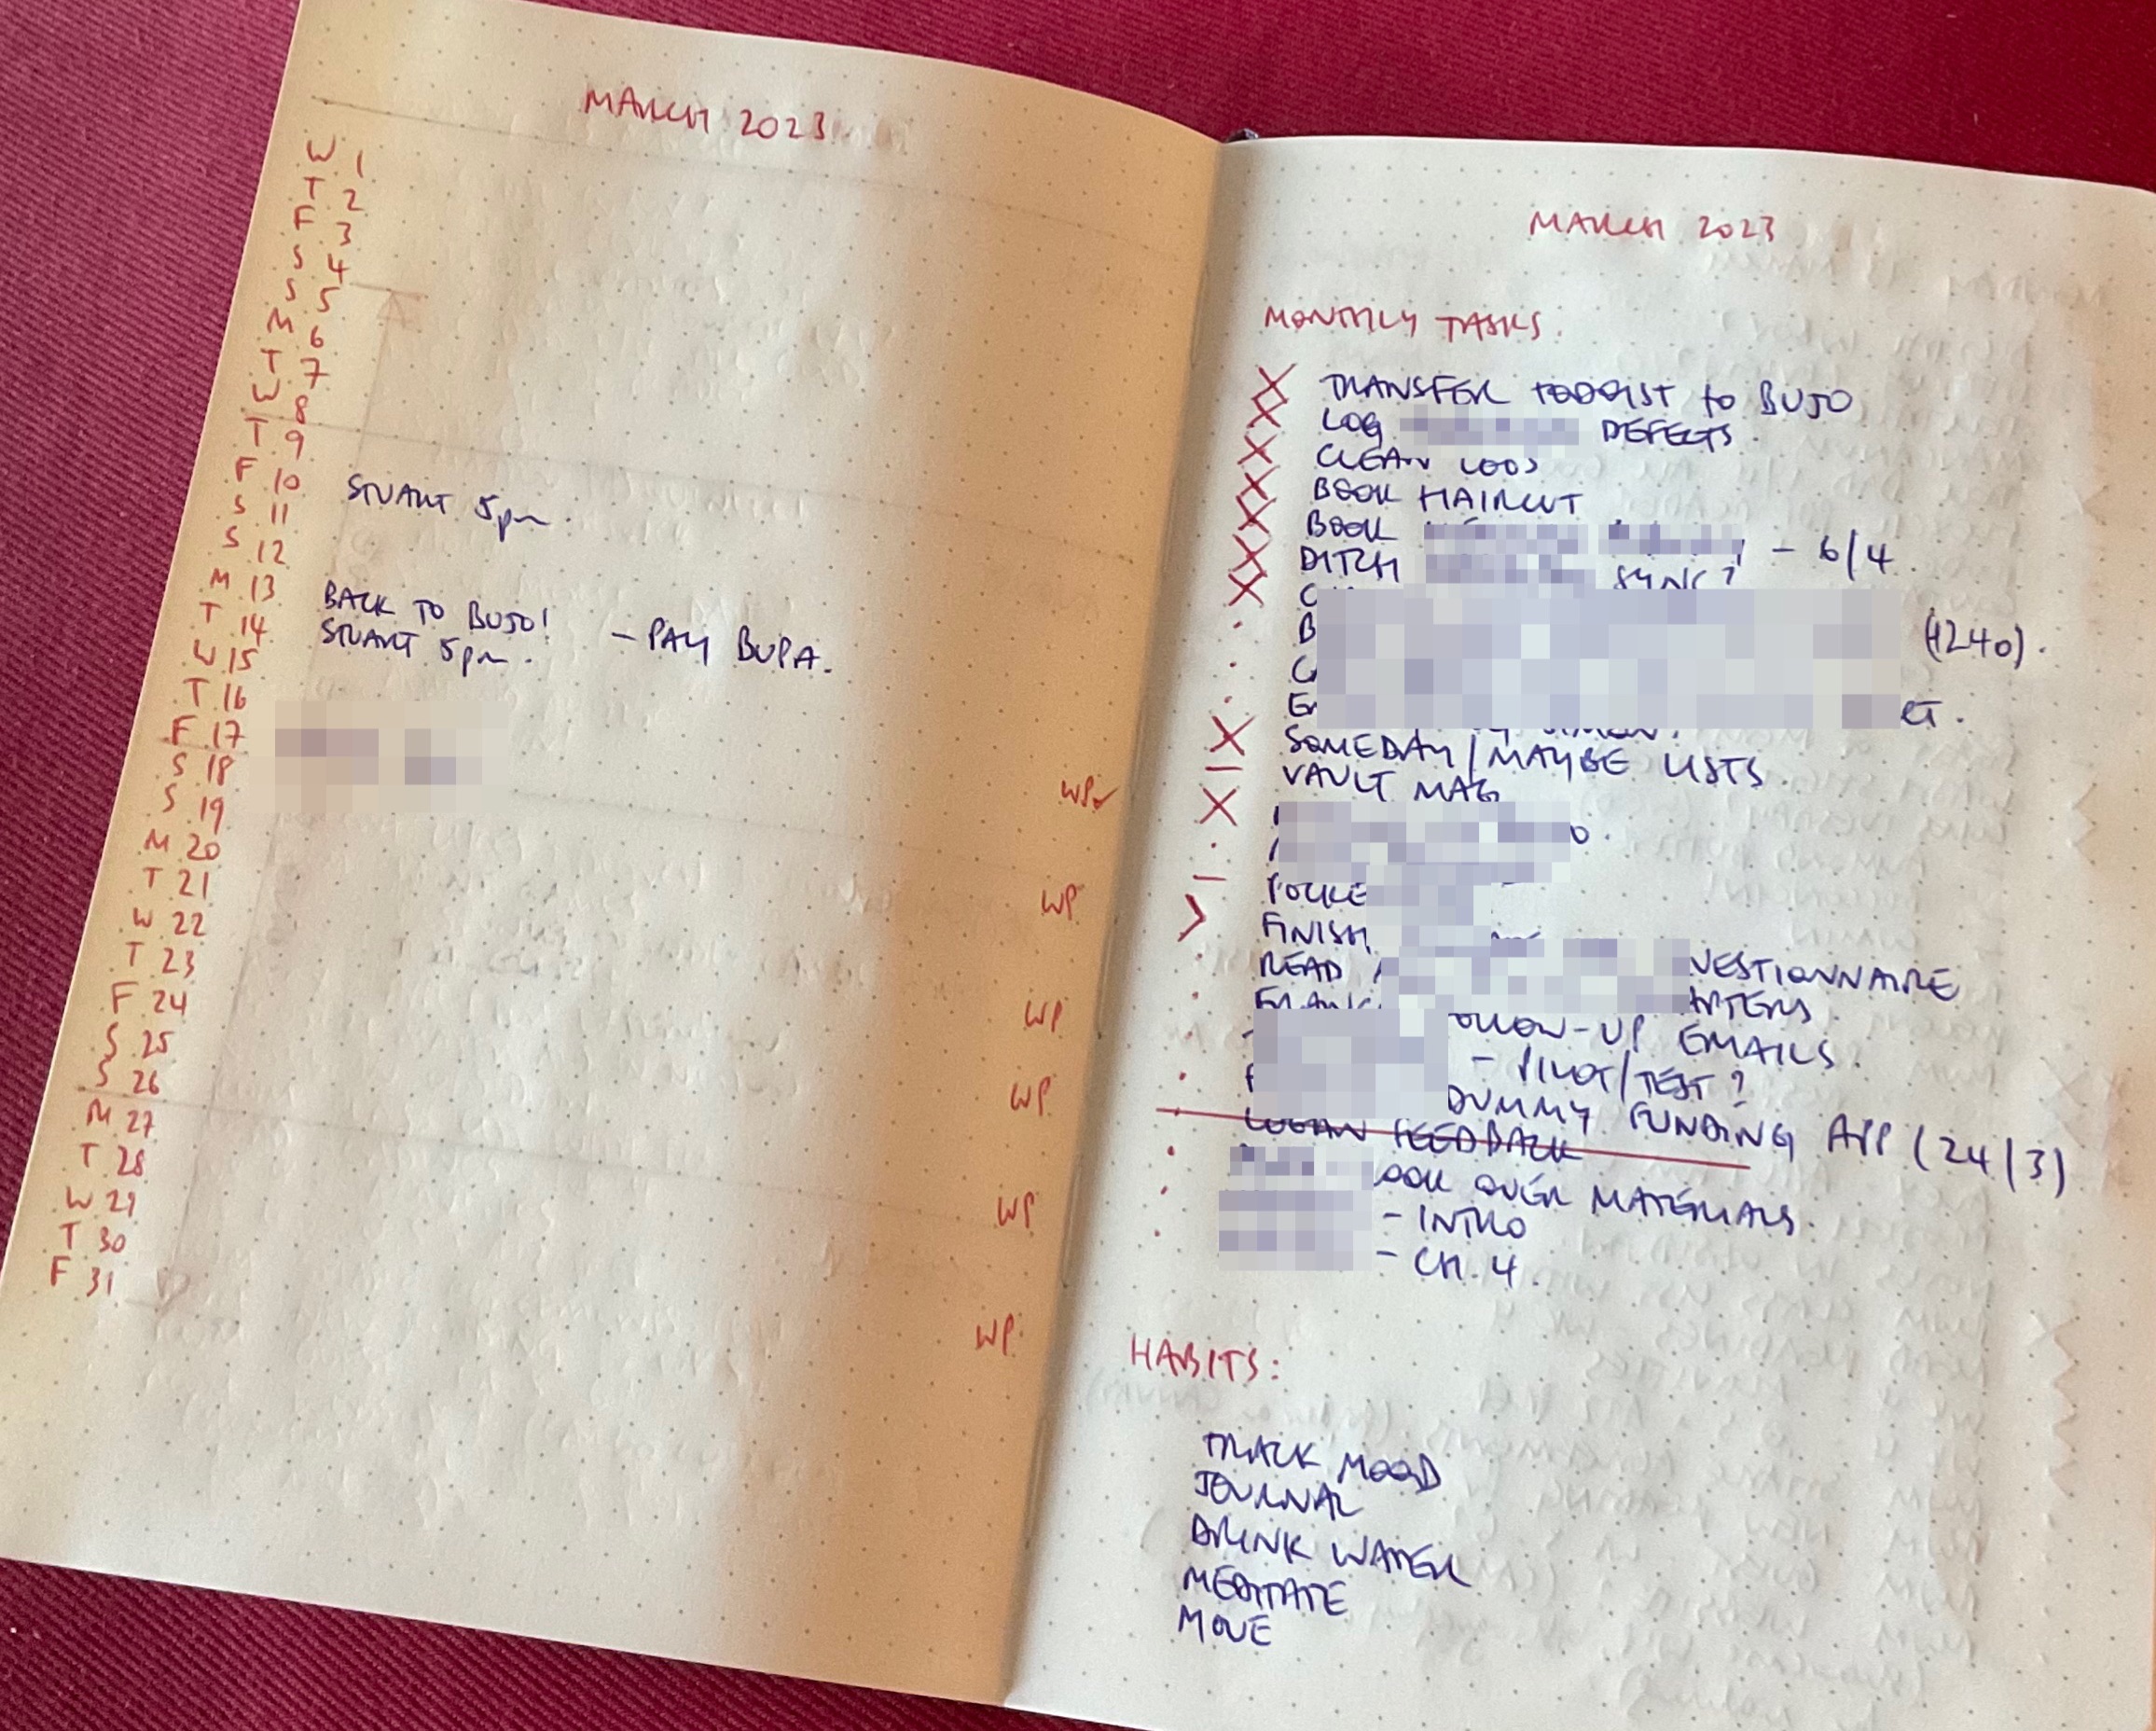 MARCH 2023
W 1
T 2
F 3
S 4
S 5
M 6
T 7
W 8
T 9
F 10
S 11 STUART 5pm.
S 12
M 13
T 14 BACK TO BUJO! - PAY BUPA.
W 15 STUART 5pm.
T 16
F 17
S 18
S 19
M 20
T 21
W 22
T 23
F 24
S 25
S 26
M 27
T 28
W 29
T 30
F 31
WP✓
WP
WP
WP
WP
WP
MARCH 2023
MONTHLY TASKS.
X TRANSFER TODOIST TO BUJO
X LOG DEFECTS.
X CLEAN LOOS
X BOOK HAIRCUT
X BOOK - 6/4
X DITCH SYNC?
X
· (1240).
·
·
X SOMEDAY/MAYBE LISTS.
– VAULT MAG
X
·
–
> FINISH
· READ
FOLLOW-UP EMAILS.
· - PILOT/TEST?
DUMMY FUNDING APP (24/3)
LOGAN FEEDBACK
· OVER MATERIALS.
· - INTRO
· - CH. 4.
HABITS:
TRACK MOOD
JOURNAL
DRINK WATER
MEDITATE
MOVE